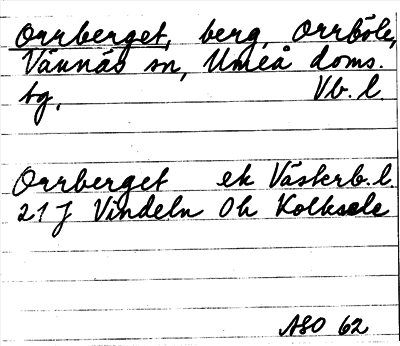 Orrberget, berg, Orrböle,
Vännäs sn, Umeå doms.
tg, Vb. l.
Orrberget ek Västerb. l.
21 J Vindeln Oh Kolksele
ASO 62